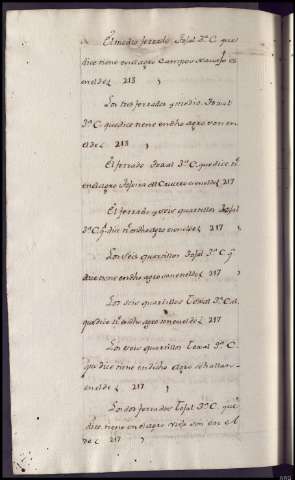 El medio ferrado Tojal 3ª C. que
dice tiene en el agro Campos
en el de ( 213 )
Los tres ferrados y medio
3ª C. que dice tiene en dho agro son en
el de ( 213 )
El ferrado 3ª C. que dice tⁿ.
en el agro es en el de ( 217
El ferrado y seis quartillos Tojal
3ª C. q̃. dice tⁿ. en dho agro es en el de ( 217
Los seis quartillos Tojal 3ª C. q̃
dice tiene en dho agro son en el de ( 217
Los seis quartillos Toxal 3ª C.
que dice tⁿ. en dho agro son en el de ( 217
Los seis quartillos Toxal 3ª C.
que dice tiene en dicho agro se hallan
en el de ( 217 )
Los dos ferrados Tojal 3ª C. que
dice, tiene en el agro son en el
de ( 217 )